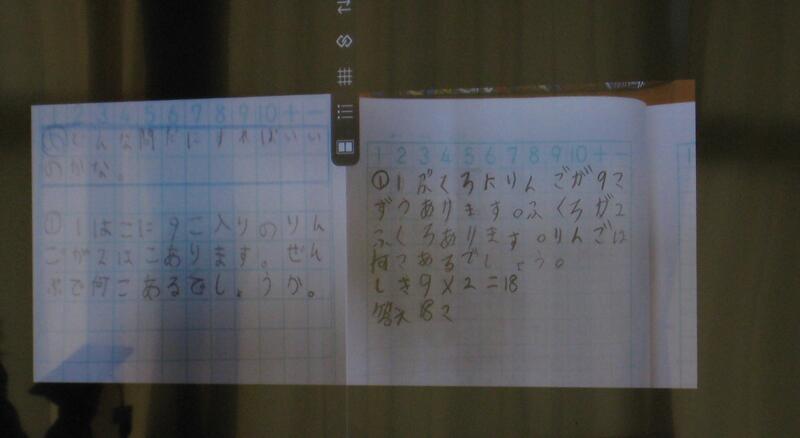 1 2 3 4 5 6 7 8 9 10 + -
どんな問だにすればいい
のかな。
① 1はこに9こ入りのりん
ごが2はこあります。ぜん
ぶで何こあるでしょうか。
1 2 3 4 5 6 7 8 9 10 + -
① 1ぶくろにりんごが9こ
ずつあります。ふくろが2
ふくろあります。りんごは
何こあるでしょう。
しき9×2=18
答え18こ
1